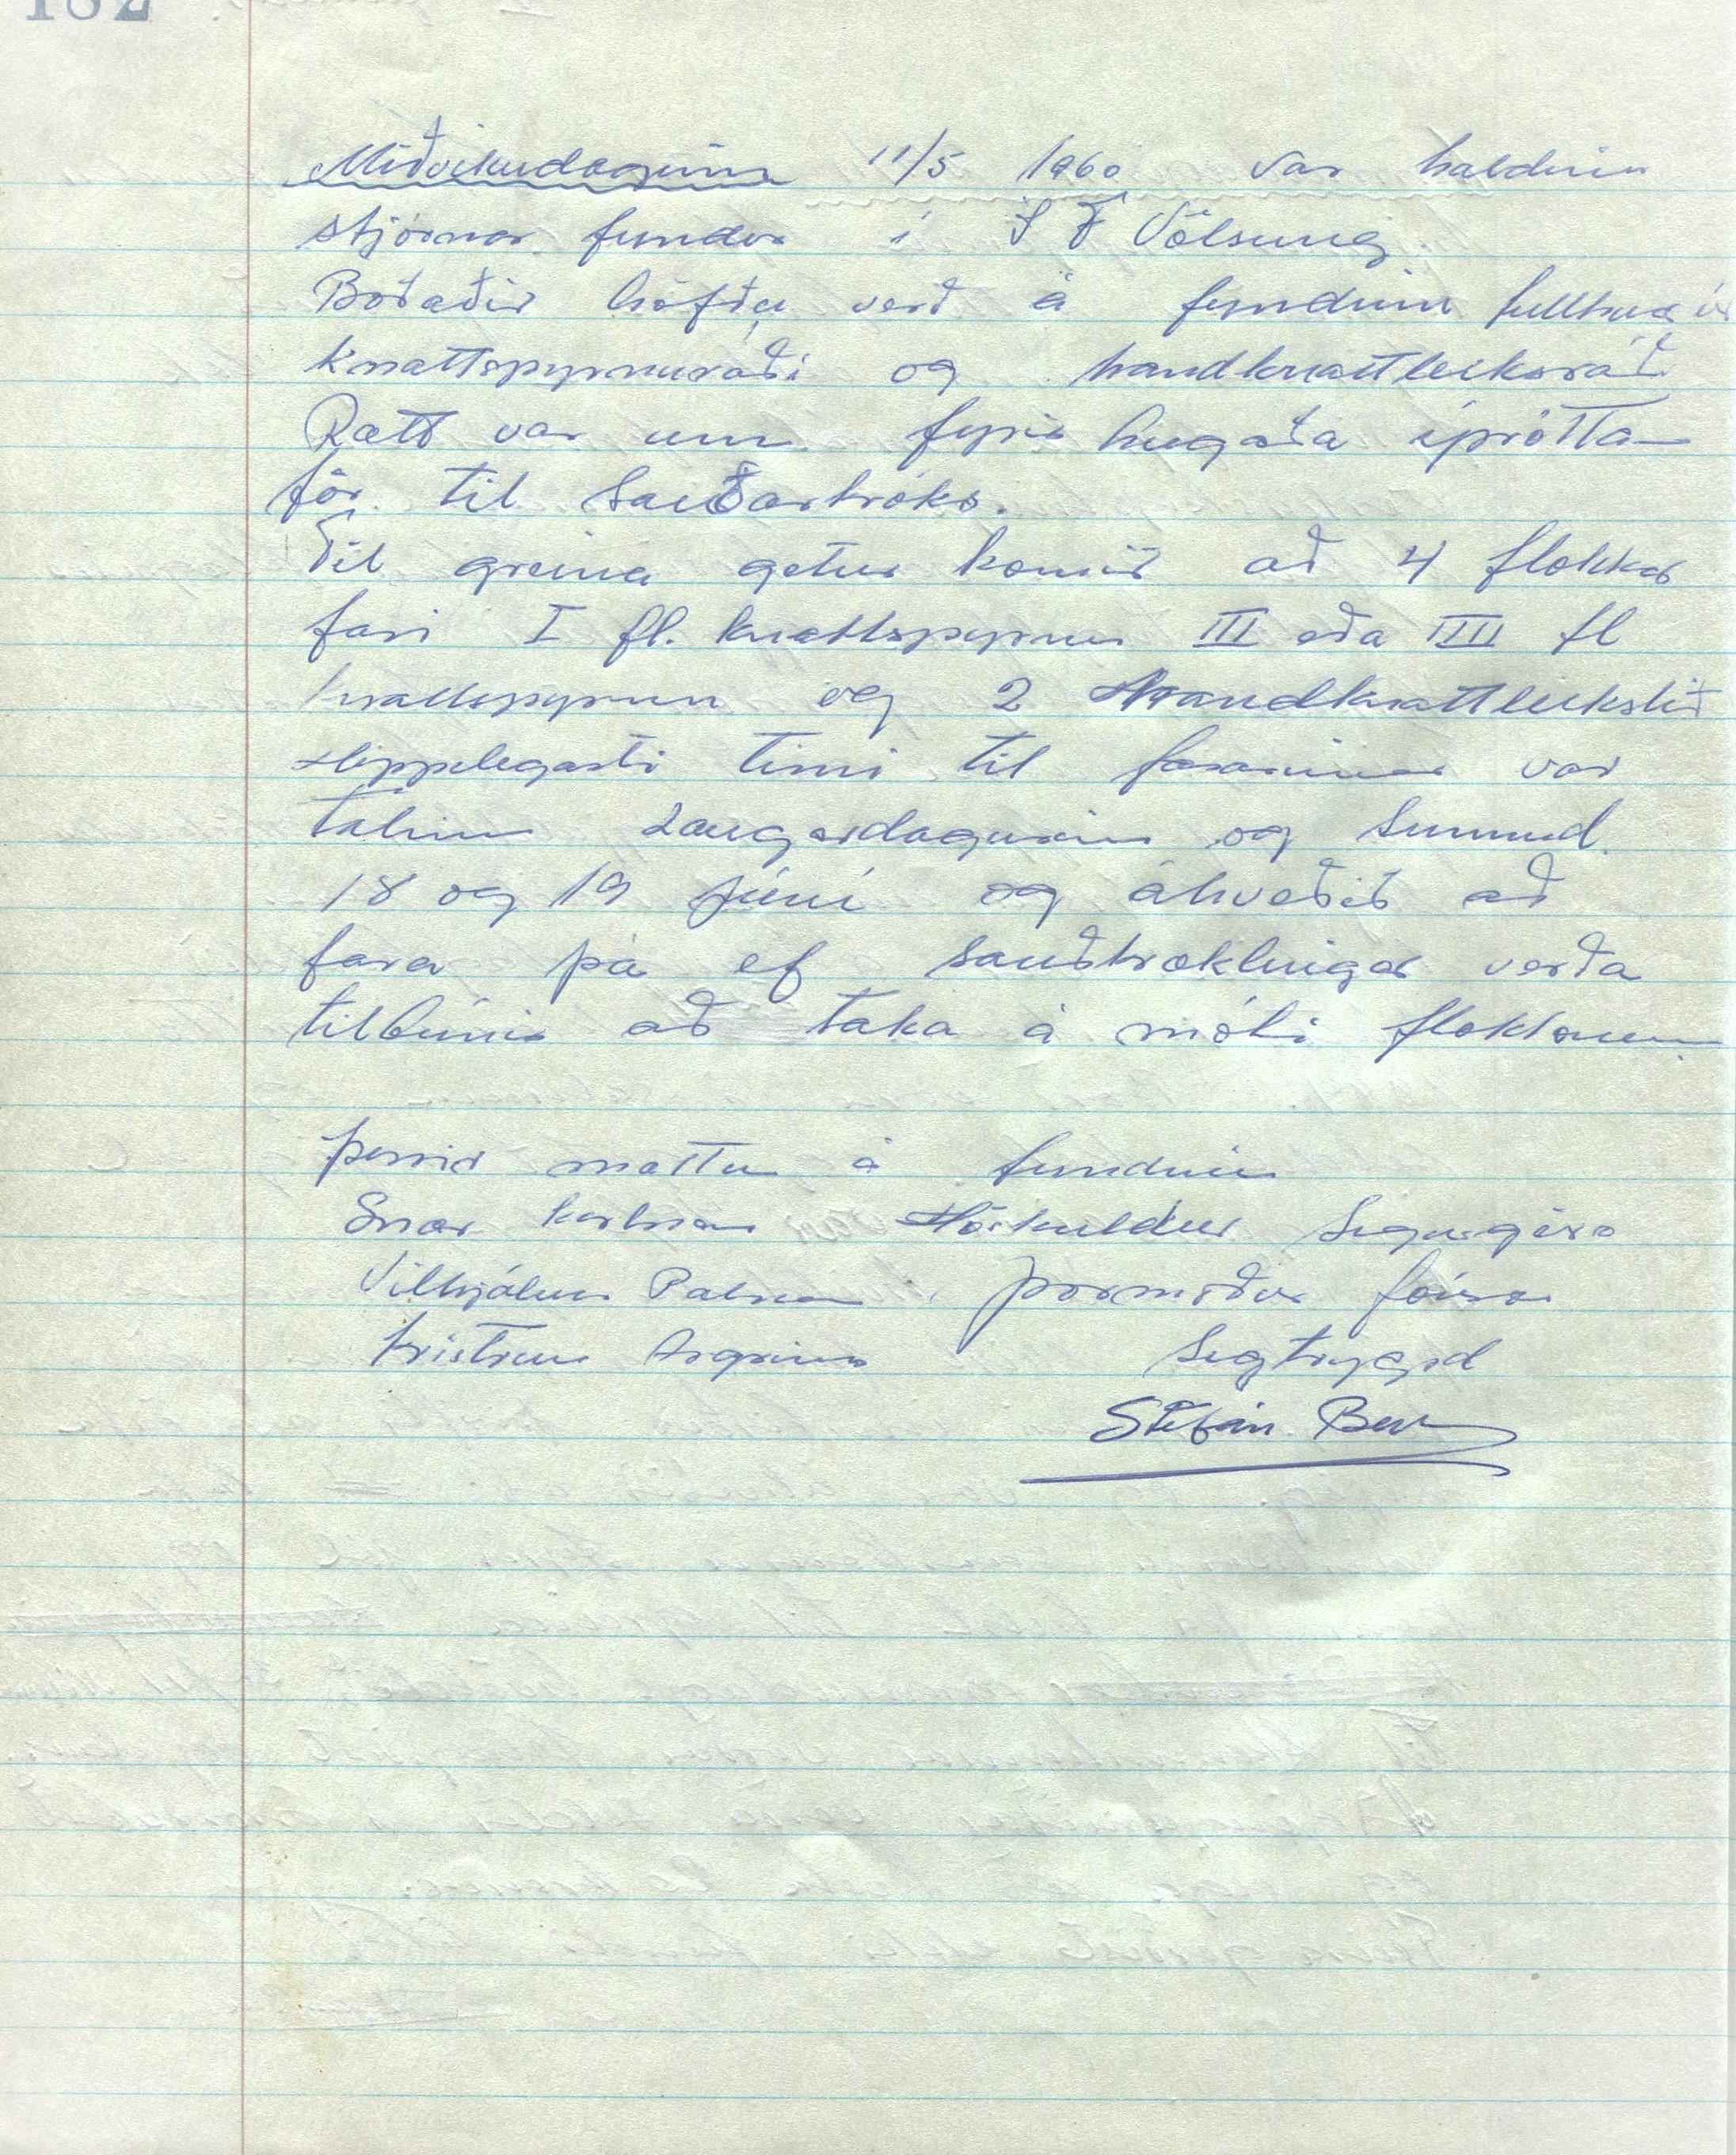 182
Miðvikudaginn 11/5 1960 var haldinn
stjórnar fundur í Í F Völsung
Boðaðir höfðu verð á fundinn fulltrúar úr
knattspyrnuráði og handknattleiksráð
Rætt var um fyrir hugaða íþrótta
för til Sauðarkróks.
Til greina getur komið að 4 flokkar
fari I fl. knattspyrnu III eða IIII fl
knattspyrnu og 2 Handknattleikslið
Heppilegasti tími til fararinnar var
talinn Laugardagurinn og Sunnud.
18 og 19 júní og ákveðið að
fara þá ef Sauðkræklingar verða
tilbúnir að taka á móti flokkunum
Þessir mættu á fundinn
Snær Karlsson Höskuldur Sigurgeirs
Vilhjálmur Pálsson, Þormóður Jónsson
Sigtrygg
Stefán Ben